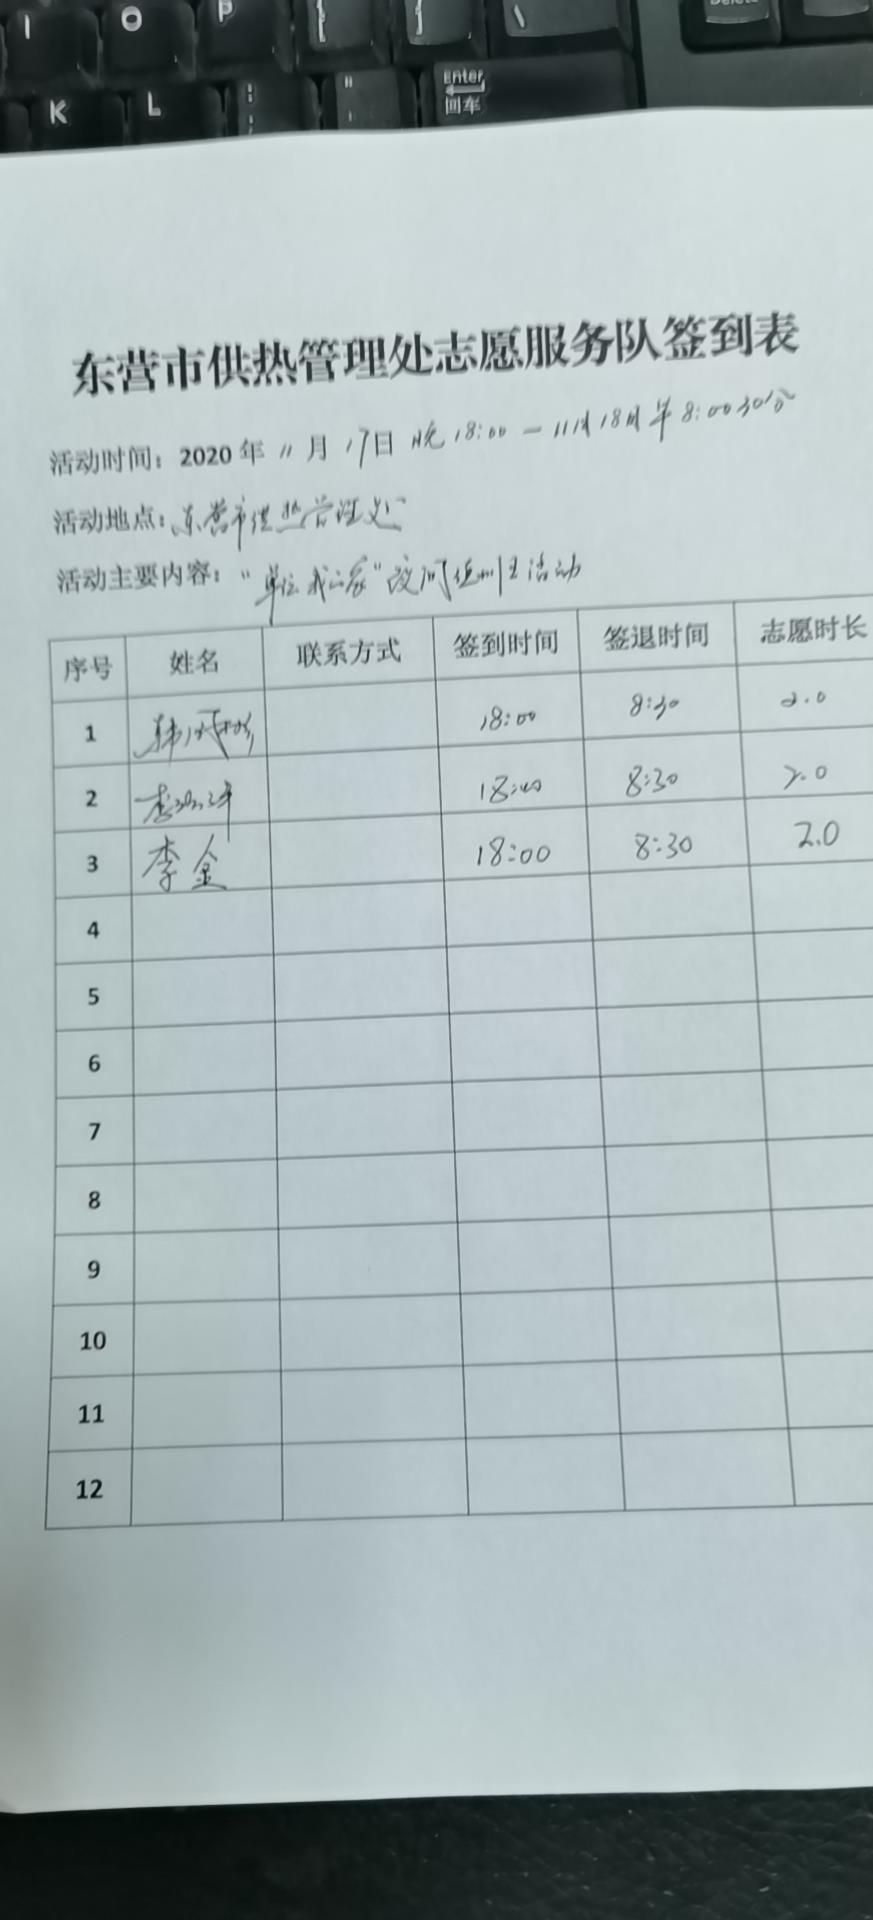 I O P { [ } ] \ Delete
K L : ; " ' Enter
回车
东营市供热管理处志愿服务队签到表
活动时间：2020 年 11 月 17日 晚 18:00 — 11月 18日 早 8:00 30分
活动地点：东营市供热管理处
活动主要内容："单位我之家" 夜间 活动
序号 姓名 联系方式 签到时间 签退时间 志愿时长
1 韩 18:00 8:30 2.0
2 李 18:00 8:30 2.0
3 李金 18:00 8:30 2.0
4
5
6
7
8
9
10
11
12